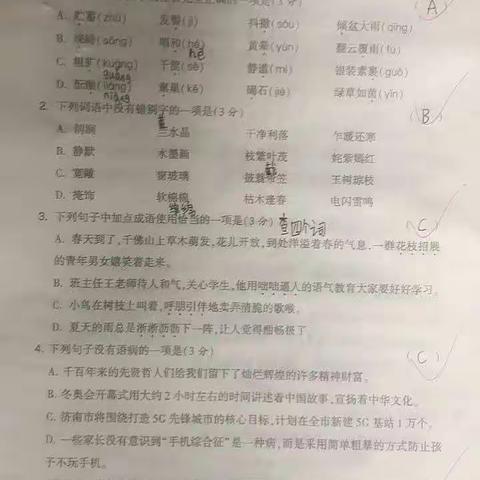 A. 贮蓄(zhù) 发髻(jì) 抖擞(sǒu) 倾盆大雨(qīng)
(A)
唱和(hé) 黄晕(yùn) 翻云覆雨(fù)
hè
C. 粗犷(kuàng) 静谧(mì) 银装素裹(guǒ)
guǎng
D. 酝酿(liàng) 碣石(jié) 绿草如茵(yīn)
niàng
2. 下列词语中没有错别字的一项是(3分)
(B)
A. 朗润 水晶 干净利落 乍暖还寒
蓝
B. 静默 水墨画 枝繁叶茂 姹紫嫣红
C. 宽敞 窗玻璃 玉树琼枝
D. 掩饰 软棉棉 枯木逢春 电闪雷鸣
绵绵
3. 下列句子中加点成语使用恰当的一项是(3分)
查四个词
(C)
A. 春天到了,千佛山上草木萌发,花儿开放,到处洋溢着春的气息,一群花枝招展
的青年男女嬉笑着走来。
B. 班主任王老师待人和气,关心学生,他用咄咄逼人的语气教育大家要好好学习。
C. 小鸟在树枝上叫着,呼朋引伴地卖弄清脆的歌喉。
D. 夏天的雨总是淅淅沥沥下一阵,让人觉得酣畅极了。
4. 下列句子没有语病的一项是(3分)
(C)
A. 千百年来的先贤哲人们给我们留下了灿烂辉煌的许多精神财富。
B. 冬奥会开幕式用大约2小时左右的时间讲述着中国故事,宣扬着中华文化。
C. 济南市将围绕打造5G先锋城市的核心目标,计划在全市新建5G基站1万个。
D. 一些家长没有意识到“手机综合征”是一种病,而是采用简单粗暴的方式防止孩
子不玩手机。